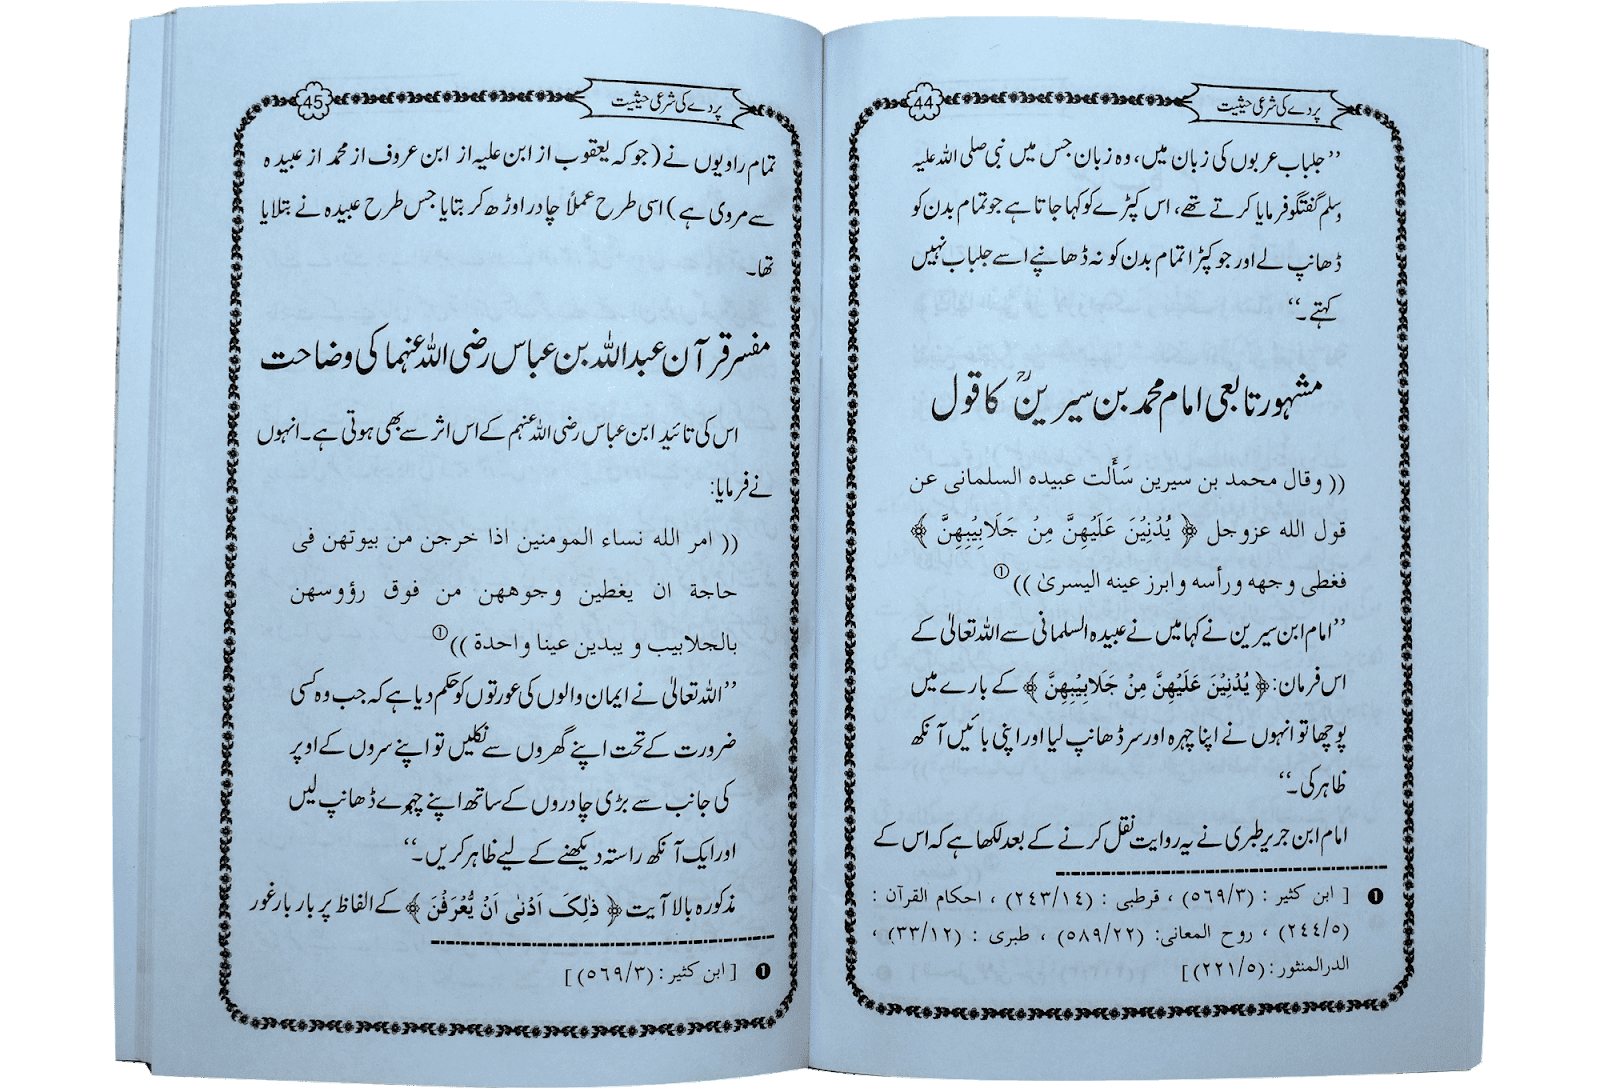 پردے کی شرعی حیثیت
44
’’جلباب عربوں کی زبان میں، وہ زبان جس میں نبی صلی اللہ علیہ
وسلم گفتگو فرمایا کرتے تھے، اس کپڑے کو کہا جاتا ہے جو تمام بدن کو
ڈھانپ لے اور جو کپڑا تمام بدن کو نہ ڈھانپے اسے جلباب نہیں
کہتے۔‘‘
مشہور تابعی امام محمد بن سیرینؒ کا قول
(( وقال محمد بن سیرین سَأَلت عبیدہ السلمانی عن
قول اللہ عزوجل ﴿ یُدْنِیْنَ عَلَیْهِنَّ مِنْ جَلَابِیْبِهِنَّ ﴾
فغطی وجھہ ورأسہ وابرز عینہ الیسریٰ ))①
’’امام ابن سیرین نے کہا میں نے عبیدہ السلمانی سے اللہ تعالیٰ کے
اس فرمان: ﴿ یُدْنِیْنَ عَلَیْهِنَّ مِنْ جَلَابِیْبِهِنَّ ﴾ کے بارے میں
پوچھا تو انہوں نے اپنا چہرہ اور سر ڈھانپ لیا اور اپنی بائیں آنکھ
ظاہر کی۔‘‘
امام ابن جریر طبری نے یہ روایت نقل کرنے کے بعد لکھا ہے کہ اس کے
❶ [ ابن کثیر : (٥٦٩/٣) ، قرطبی : (٢٤٣/١٤) ، احکام القرآن :
(٢٤٤/٥) ، روح المعانی: (٥٨٩/٢٢) ، طبری : (٣٣/١٢) ،
الدرالمنثور: (٢٢١/٥)]
پردے کی شرعی حیثیت
45
تمام راویوں نے (جو کہ یعقوب از ابن علیہ از ابن عروف از محمد از عبیدہ
سے مروی ہے) اسی طرح عملاً چادر اوڑھ کر بتایا جس طرح عبیدہ نے بتلایا
تھا۔
مفسر قرآن عبداللہ بن عباس رضی اللہ عنہما کی وضاحت
اس کی تائید ابن عباس رضی اللہ عنہم کے اس اثر سے بھی ہوتی ہے۔ انہوں
نے فرمایا:
(( امر اللہ نساء المومنین اذا خرجن من بیوتھن فی
حاجة ان یغطین وجوھھن من فوق رؤوسھن
بالجلابیب و یبدین عینا واحدة ))①
’’اللہ تعالیٰ نے ایمان والوں کی عورتوں کو حکم دیا ہے کہ جب وہ کسی
ضرورت کے تحت اپنے گھروں سے نکلیں تو اپنے سروں کے اوپر
کی جانب سے بڑی چادروں کے ساتھ اپنے چہرے ڈھانپ لیں
اور ایک آنکھ راستہ دیکھنے کے لیے ظاہر کریں۔‘‘
مذکورہ بالا آیت ﴿ ذٰلِکَ اَدْنٰی اَنْ یُّعْرَفْنَ ﴾ کے الفاظ پر بار بار غور
❶ [ ابن کثیر : (٥٦٩/٣)]